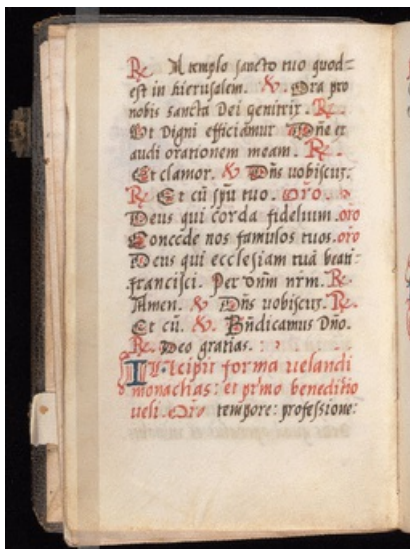 ℞. A templo sancto tuo quod=
est in hierusalem. ℣. Ora pro
nobis sancta Dei genitrix. ℞.
Ut Digni efficiamur Dñe ex
audi orationem meam. ℞.
Et clamor. ℣. Dñs uobiscuʒ.
℞. Et cũ spũ tuo. Oro.
Deus qui corda fidelium. oro
Concede nos famulos tuos. oro
Deus qui ecclesiam tuã beati
francisci. Per dñm nrm. ℞.
Amen. ℣. Dñs uobiscuʒ. ℞.
Et cũ. ℣. Bñdicamus Dño.
℞. Deo gratias.
Incipit forma uelandi
monachas: et primo
ueli. Oro tempore: professione: